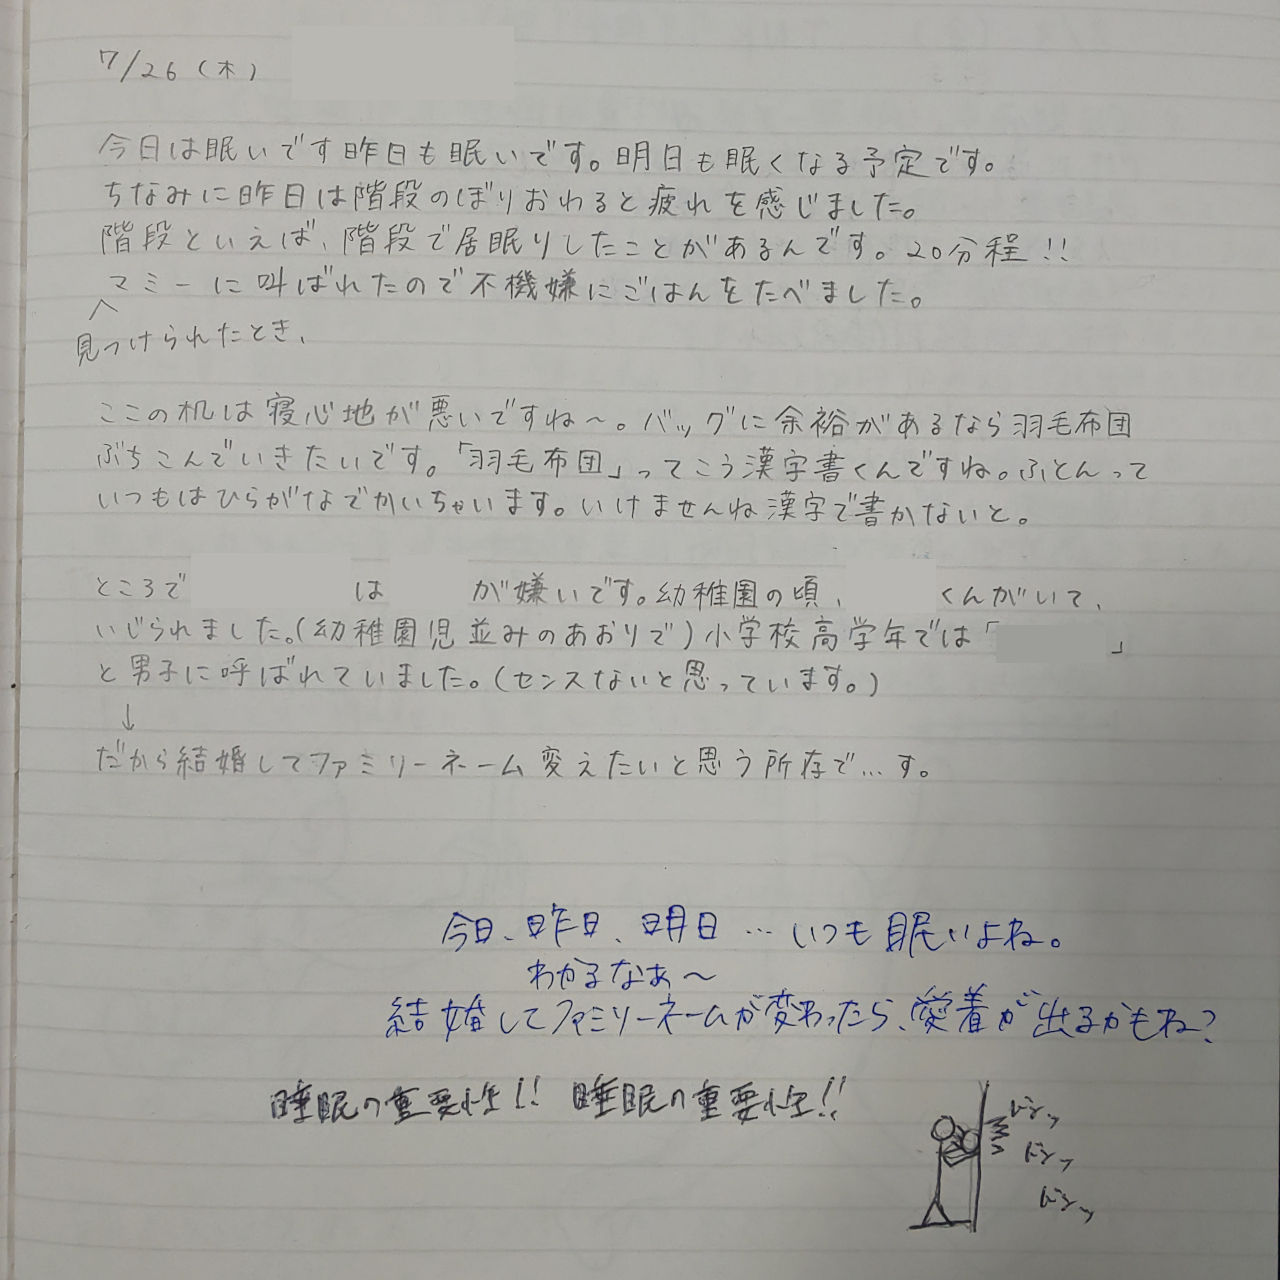 7/26(木)
今日は眠いです昨日も眠いです。明日も眠くなる予定です。
ちなみに昨日は階段のぼりおわると疲れを感じました。
階段といえば、階段で居眠りしたことがあるんです。20分程!!
マミーに叫ばれたので不機嫌にごはんをたべました。
見つけられたとき、
ここの机は寝心地が悪いですね～。バッグに余裕があるなら羽毛布団
ぶちこんでいきたいです。「羽毛布団」ってこう漢字書くんですね。ふとんって
いつもはひらがなでかいちゃいます。いけませんね漢字で書かないと。
ところで は が嫌いです。幼稚園の頃、 くんがいて、
いじられました。(幼稚園児並みのあおりで)小学校高学年では「 」
と男子に呼ばれていました。(センスないと思っています。)
↓
だから結婚してファミリーネーム変えたいと思う所存で…す。
今日、昨日、明日…いつも眠いよね。
わかるなぁ～
結婚してファミリーネームが変わったら、愛着が出るかもね?
睡眠の重要性!! 睡眠の重要性!!
ドンッ
ドンッ
ドンッ